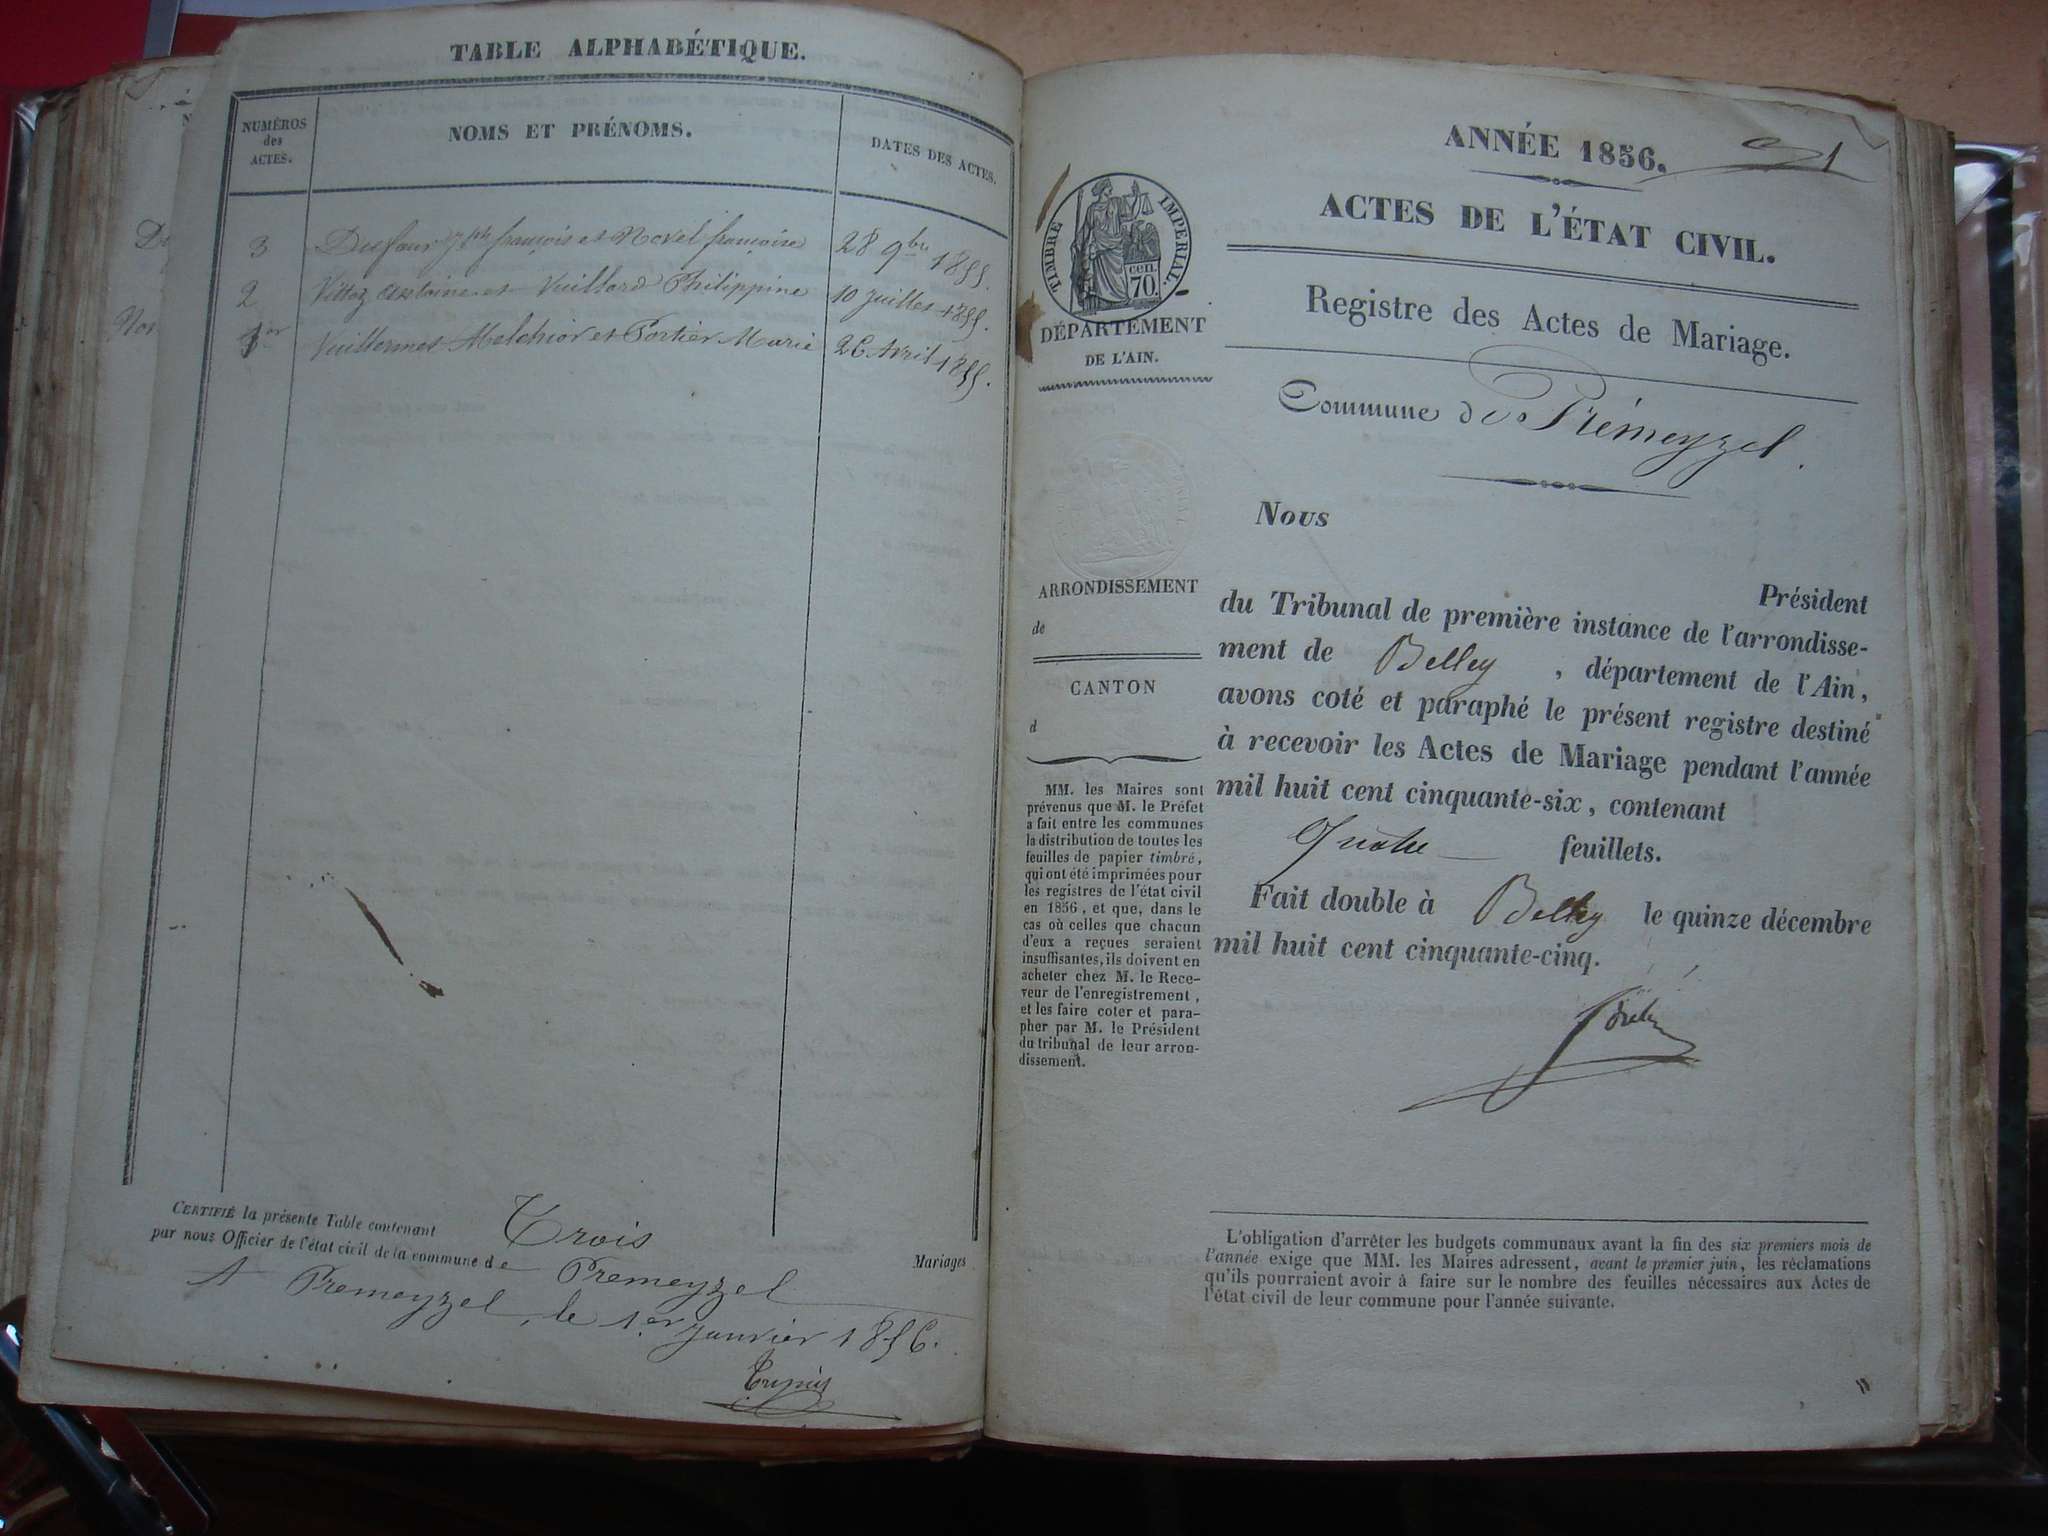 TABLE ALPHABÉTIQUE.
NUMÉROS
des
ACTES.
NOMS ET PRÉNOMS.
DATES DES ACTES.
3 Dufour Jph françois et Novel françoise 28 9bre 1855.
2 Vittoz Antoine et Vuillard Philippine 10 Juillet 1855.
1er Vuillermet Melchior et Portier Marie 26 Avril 1855.
CERTIFIÉ la présente Table contenant Trois Mariages
par nous Officier de l'état civil de la commune de Premeyzel
A Premeyzel, le 1er Janvier 1856.
ANNÉE 1856.
1
ACTES DE L'ÉTAT CIVIL.
Registre des Actes de Mariage.
TIMBRE IMPÉRIAL.
70 cen.
DÉPARTEMENT
DE L'AIN.
Commune de Prémeyzel.
Nous
Président
du Tribunal de première instance de l'arrondisse-
ment de Belley, département de l'Ain,
avons coté et paraphé le présent registre destiné
à recevoir les Actes de Mariage pendant l'année
mil huit cent cinquante-six, contenant
Quatre feuillets.
Fait double à Belley le quinze décembre
mil huit cent cinquante-cinq.
ARRONDISSEMENT
de
CANTON
d
MM. les Maires sont
prévenus que M. le Préfet
a fait entre les communes
la distribution de toutes les
feuilles de papier timbré,
qui ont été imprimées pour
les registres de l'état civil
en 1856, et que, dans le
cas où celles que chacun
d'eux a reçues seraient
insuffisantes, ils doivent en
acheter chez M. le Rece-
veur de l'enregistrement,
et les faire coter et para-
pher par M. le Président
du tribunal de leur arron-
dissement.
L'obligation d'arrêter les budgets communaux avant la fin des six premiers mois de
l'année exige que MM. les Maires adressent, avant le premier juin, les réclamations
qu'ils pourraient avoir à faire sur le nombre des feuilles nécessaires aux Actes de
l'état civil de leur commune pour l'année suivante.